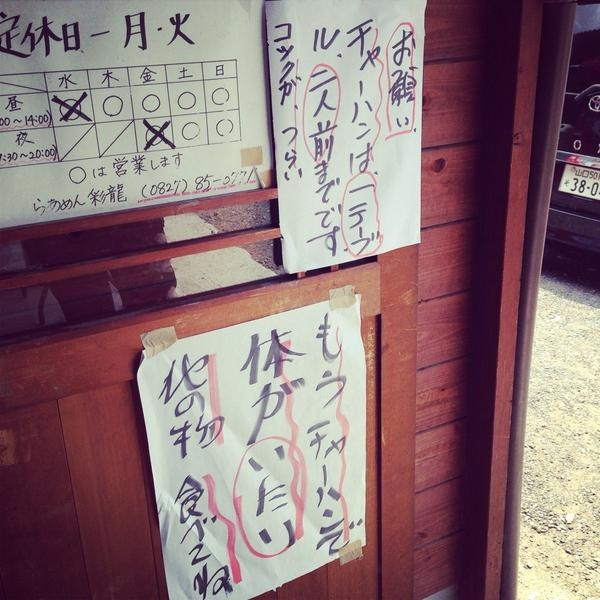 定休日－月・火
水 木 金 土 日
昼
00～14:00)
× ○ ○ ○ ○
夜
7:30～20:00)
× ○ ○
○は営業します
らぁめん 彩龍 (0827) 85-0771
お願い、
チャーハンは、一テーブ
ル、二人前までです。
コックが、つらい
もうチャーハンで
体がいたい
他の物 食べてね
山口 501
38-0